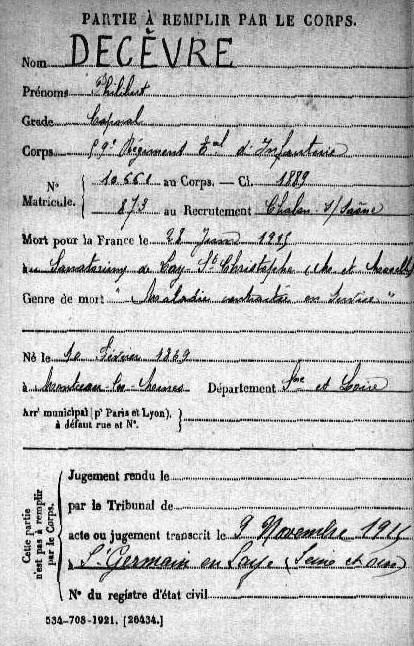 PARTIE À REMPLIR PAR LE CORPS.
Nom DECÈVRE
Prénoms Philibert
Grade Caporal
Corps 59e Régiment Tal d'Infanterie
N° Matricule. 10661 au Corps. — Cl. 1889
873 au Recrutement Chalon s/Saône
Mort pour la France le 28 Juin 1915
au Sanatorium de Lay St Christophe (Mthe et Moselle)
Genre de mort "Maladie contractée en Service"
Né le 10 Février 1869
à Montceau-les-Mines Département Sne et Loire
Arrt municipal (pr Paris et Lyon),
à défaut rue et N°.
Cette partie n'est pas à remplir par le Corps.
Jugement rendu le
par le Tribunal de
acte ou jugement transcrit le 9 Novembre 1915
à St Germain en Laye (Seine et Oise)
N° du registre d'état civil
534-708-1921. [26434.]